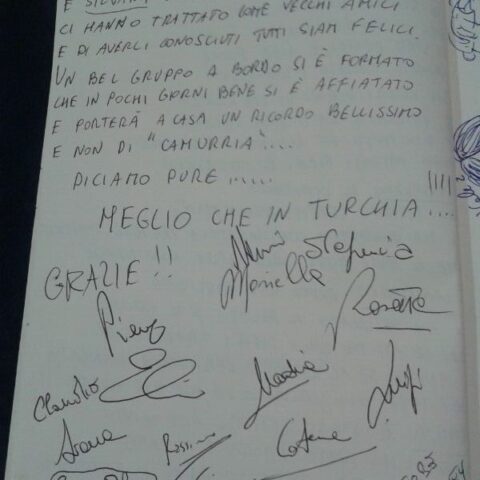 E SILVANA
CI HANNO TRATTATO COME VECCHI AMICI
E DI AVERLI CONOSCIUTI TUTTI SIAM FELICI.
UN BEL GRUPPO A BORDO SI È FORMATO
CHE IN POCHI GIORNI BENE SI È AFFIATATO
E PORTERÀ A CASA UN RICORDO BELLISSIMO
E NON DI "CAMURRIA"....
DICIAMO PURE .....
MEGLIO CHE IN TURCHIA....!!!!
GRAZIE!!
Stefania
Mariella
Rosetta
Piero
Nadia
Luigi
Claudio